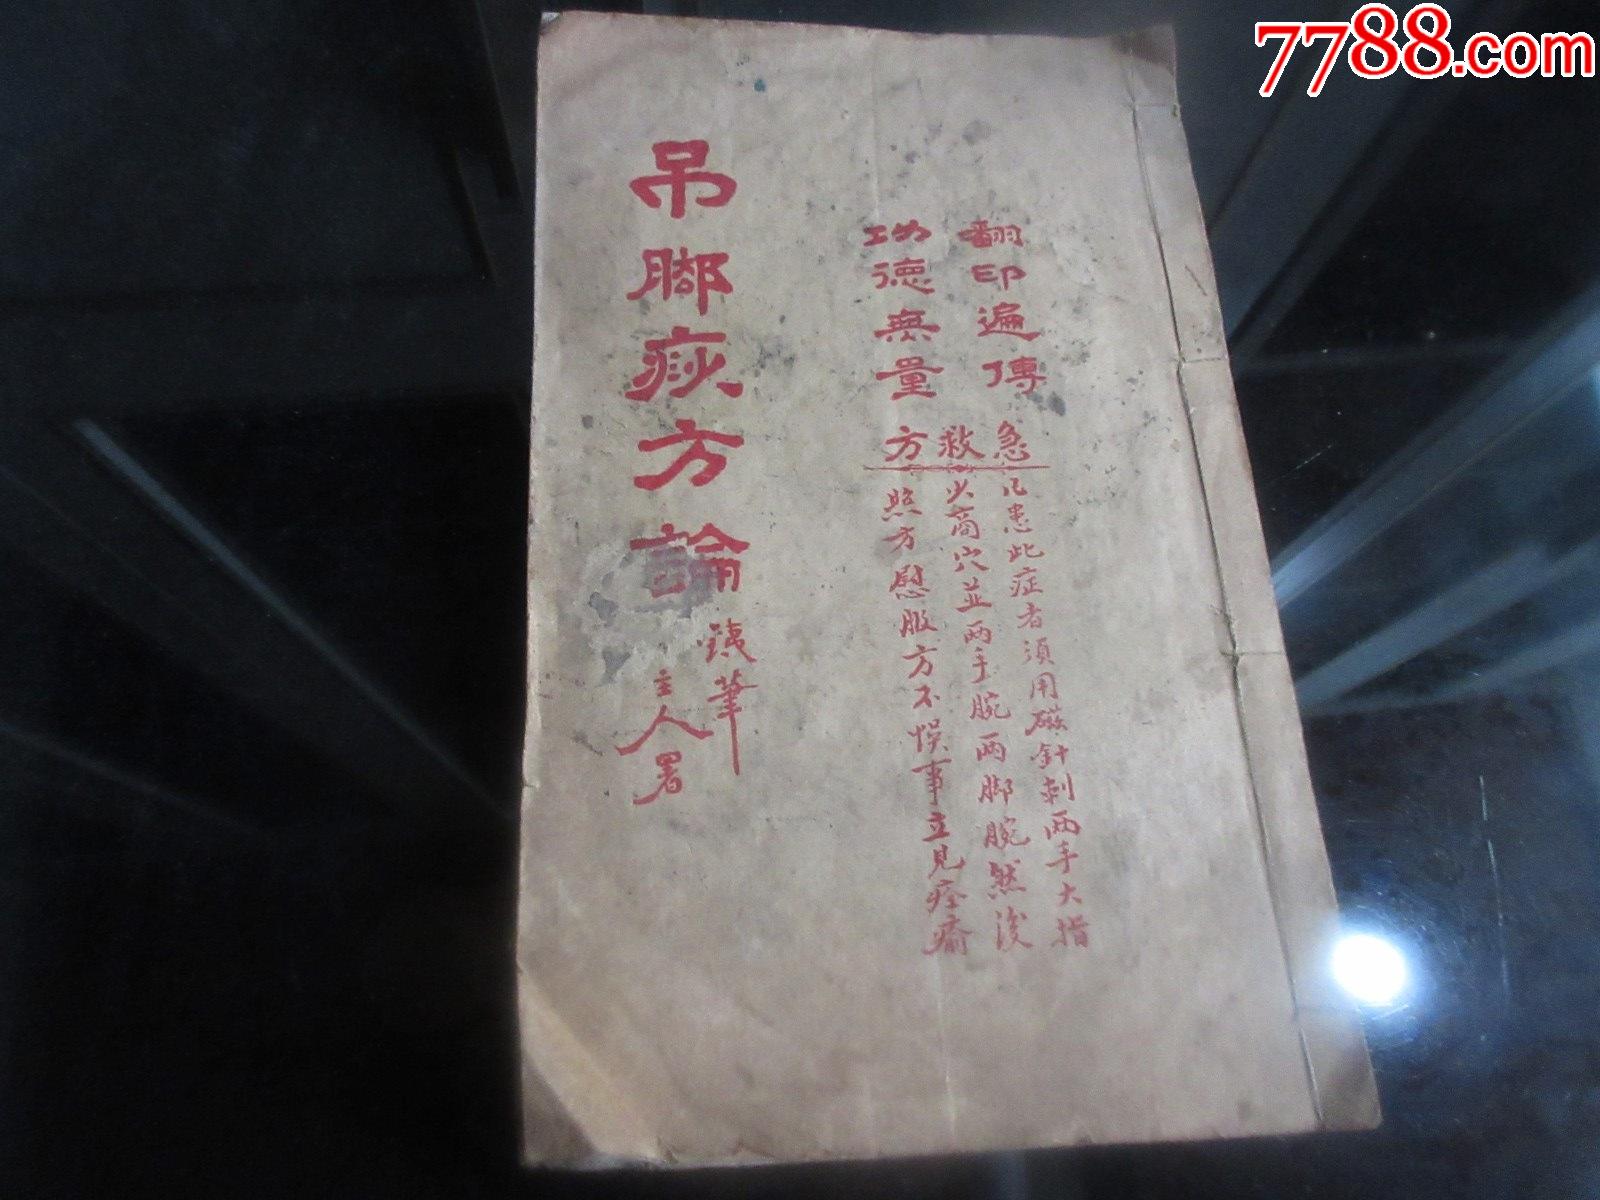 7788.com
翻印遍傳
功德無量
急救方
凡患此症者須用磁針刺兩手大指
少商穴並兩手腕兩脚腕然後
照方慰服方不悞事立見痊瘉
吊脚痧方論
鐵筆
主人署